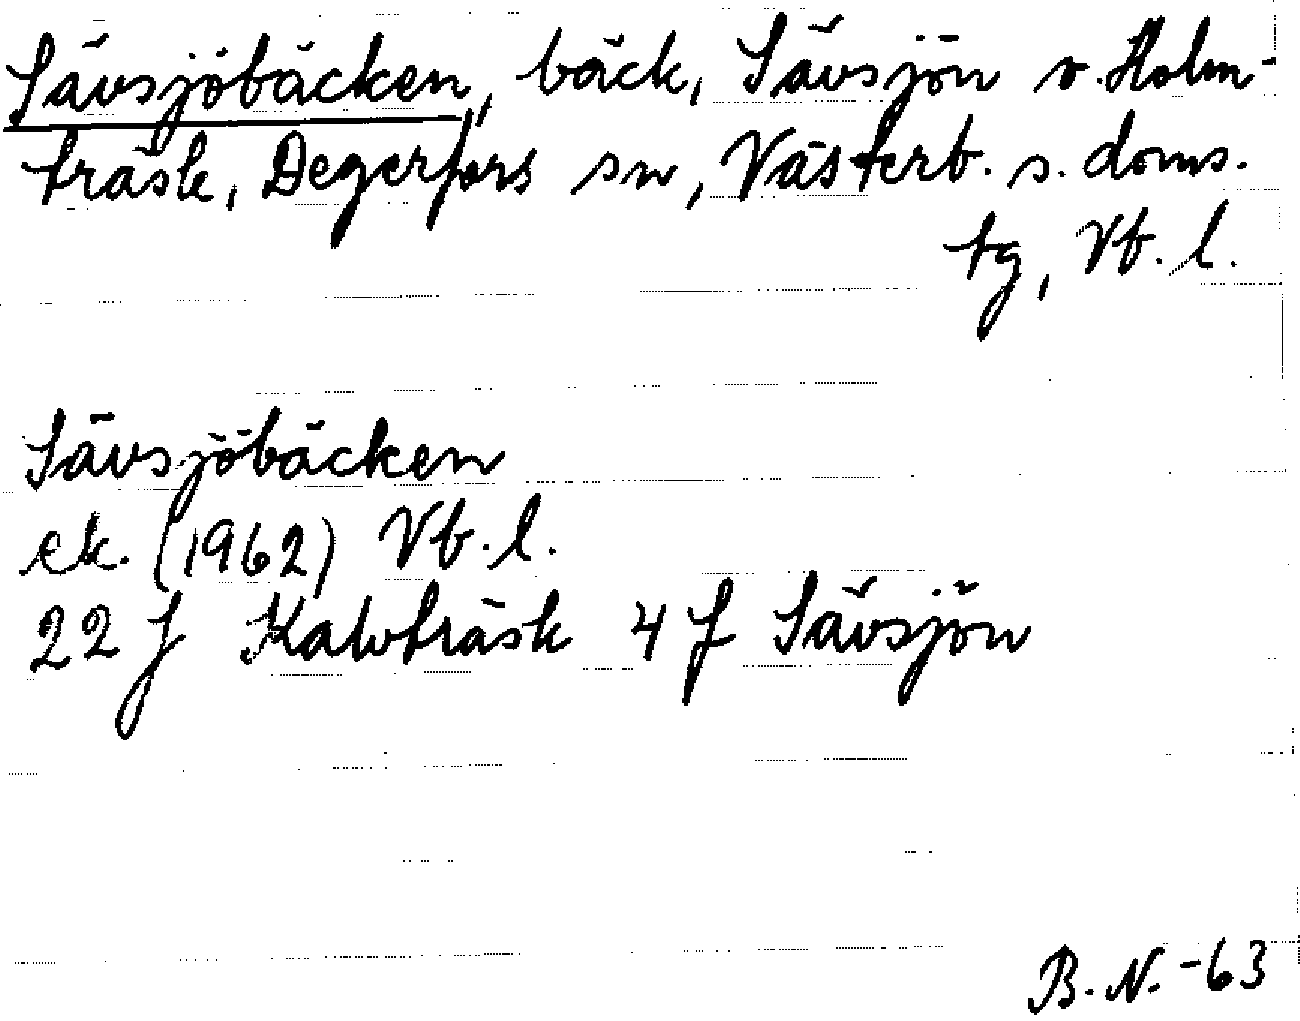 Sävsjöbäcken, bäck, Sävsjön o. Holm-
träsk, Degerfors sn, Västerb. s. doms.
tg, Vb. l.
Sävsjöbäcken
ek. (1962) Vb. l.
22 J Kalvträsk 4 f Sävsjön
B. N. -63